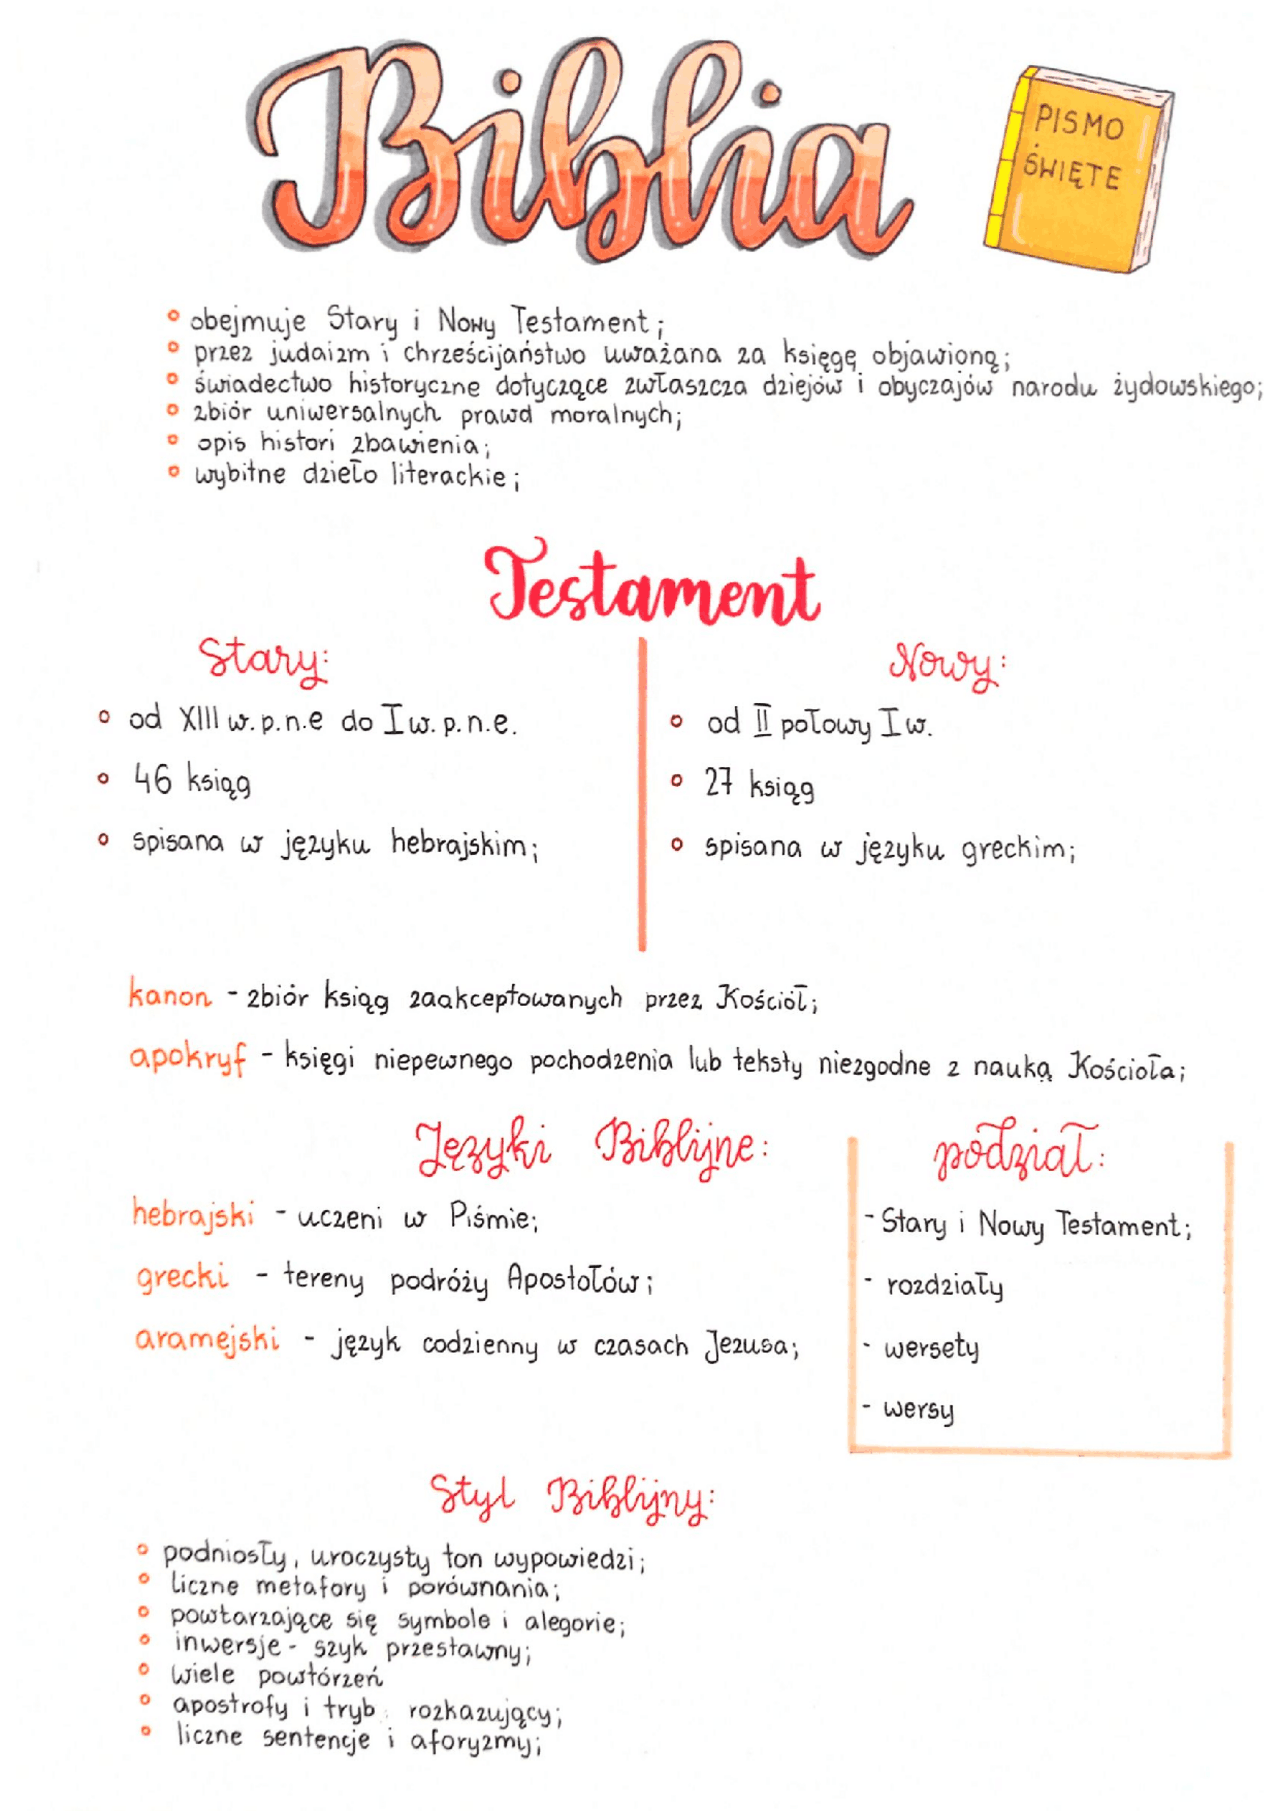 Biblia
PISMO
ŚWIĘTE
obejmuje Stary i Nowy Testament;
przez judaizm i chrześcijaństwo uważana za księgę objawioną;
świadectwo historyczne dotyczące zwłaszcza dziejów i obyczajów narodu żydowskiego;
zbiór uniwersalnych prawd moralnych;
opis histori zbawienia;
wybitne dzieło literackie;
Testament
Stary:
od XIII w. p.n.e do I w. p.n.e.
46 ksiąg
spisana w języku hebrajskim;
Nowy:
od II połowy I w.
27 ksiąg
spisana w języku greckim;
kanon - zbiór ksiąg zaakceptowanych przez Kościół;
apokryf - księgi niepewnego pochodzenia lub teksty niezgodne z nauką Kościoła;
Języki Biblijne:
hebrajski - uczeni w Piśmie;
grecki - tereny podróży Apostołów;
aramejski - język codzienny w czasach Jezusa;
podział:
- Stary i Nowy Testament;
- rozdziały
- wersety
- wersy
Styl Biblijny:
podniosły, uroczysty ton wypowiedzi;
liczne metafory i porównania;
powtarzające się symbole i alegorie;
inwersje - szyk przestawny;
wiele powtórzeń
apostrofy i tryb rozkazujący;
liczne sentencje i aforyzmy;